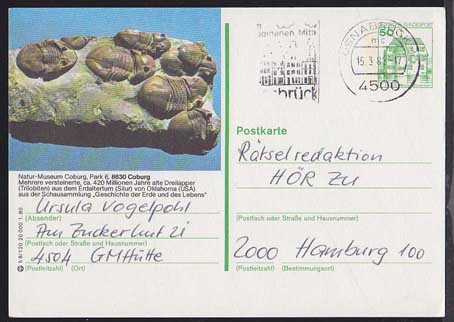 Natur-Museum Coburg, Park 6, 8630 Coburg
Mehrere versteinerte, ca. 420 Millionen Jahre alte Dreilapper
(Trilobiten) aus dem Erdaltertum (Silur) von Oklahoma (USA)
aus der Schausammlung „Geschichte der Erde und des Lebens"
Ursula Vogelpohl
(Absender)
Am Zuckerhut 2i
(Postfach oder Straße und Hausnummer)
4504 GMHütte
(Postleitzahl) (Ort)
OSNABRÜCK
15.3.8
4500
50
brück
Postkarte
Rätselredaktion
HÖR ZU
(Postfach oder Straße und Hausnummer)
2000 Hamburg 100
(Postleitzahl) (Bestimmungsort)